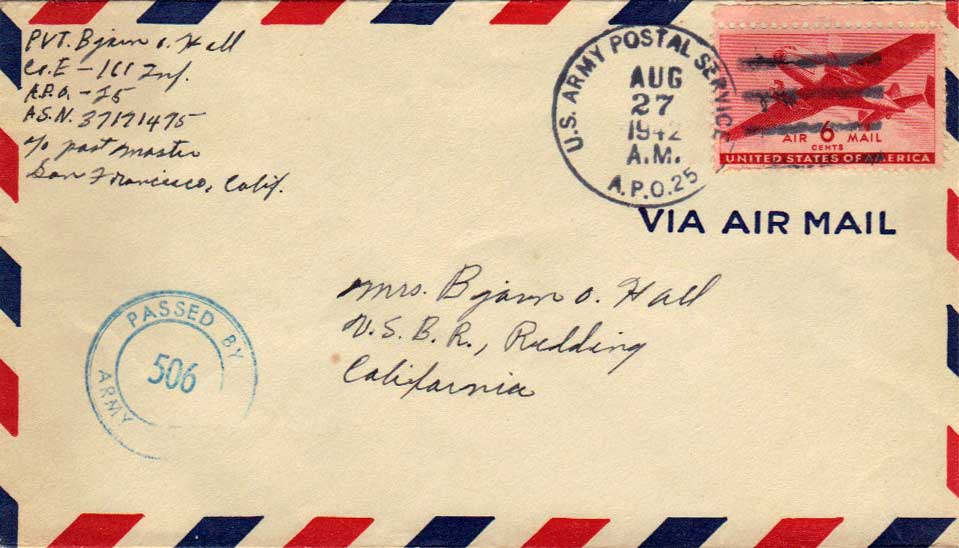 PVT. Bjarn O. Hall
Co. E - 161 Inf.
A.P.O. - 25
A.S.N. 37171475
c/o post master
San Francisco, Calif.
U.S. ARMY POSTAL SERVICE
AUG
27
1942
A.M.
A.P.O. 25
AIR 6 MAIL
CENTS
UNITED STATES OF AMERICA
VIA AIR MAIL
Mrs. Bjarn O. Hall
U.S.B.R., Redding
California
PASSED BY
506
ARMY